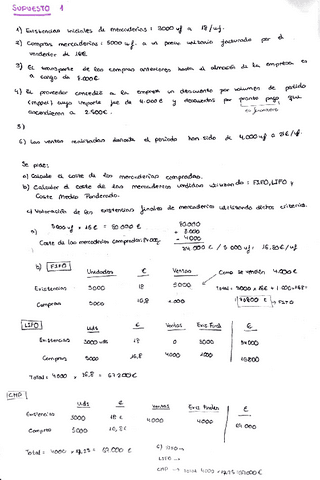 SUPUESTO 1
1) Existencias iniciales de mercaderías: 3000 uf a 18 /uf.
2) Compras mercaderías: 5000 uf. a un precio unitario facturado por el
vendedor de 16€
3) El transporte de las compras anteriores hasta el almacén de la empresa es
a cargo de 8.000€
4) El proveedor concedió a la empresa un descuento por volumen de pedido
(rappel) cuyo importe fue de 4.000 € y descuentos por pronto pago que
ascendieron a 2.500€.
5)
6) Las ventas realizadas durante el período han sido de 4.000 uf a
Se pide:
a) Calcule el coste de las mercaderías compradas.
b) Calcular el coste de las mercaderías vendidas utilizando: FIFO, LIFO y
Coste Medio Ponderado.
c) Valoración de las existencias finales de mercaderías utilizando dichos criterios.
a) 5000 uf × 16 € = 80 000 €
80.000
+ 8.000
- 4000
Coste de las mercaderías compradas:
84 000 € / 5 000 uf = 16.80€/uf
b) FIFO
Unidades € Ventas
Como se venden 4.000
Existencias 3000 18
Compras 5000 16,8 1.000
LIFO
Uds € Ventas Exis Finales €
Existencias 3000 uds 18 0 3000 54000
Compras 5000 16,8 4000 1000 16800
Total = 4000 × 16,8 = 67200€
CMP
Uds € Ventas Exis Finales €
Existencias 3000 18 € 4000 4000
Compras 5000
Total = 4000 ×
c) FIFO →
LIFO →
CMP → Total 4000 ×